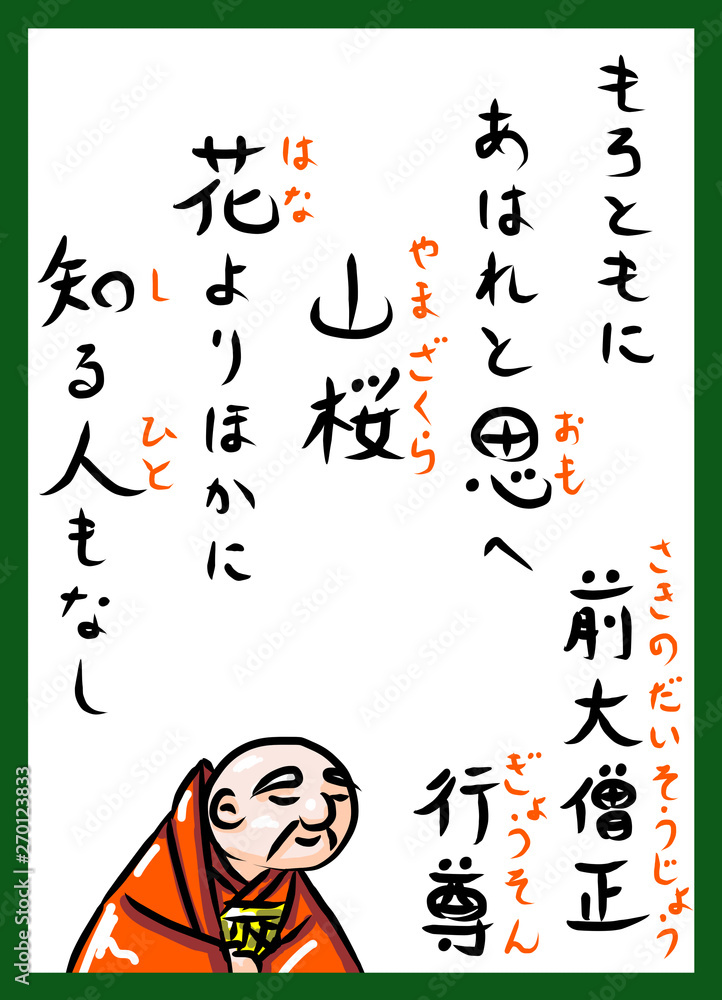 もろともに
あはれと思へ
おも
山桜
やまざくら
花よりほかに
はな
知る人もなし
し
ひと
前大僧正
さきのだいそうじょう
行尊
ぎょうそん
Adobe Stock | #270123833